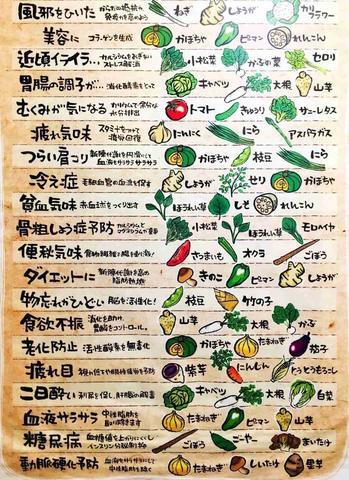 風邪をひいた からだの抵抗力、免疫力を高めよう ねぎ しょうが カリフラワー
美容に コラーゲンを生成 かぼちゃ ピーマン れんこん
近頃イライラ… カルシウムをおぎない ストレス解消 小松菜 かぶの葉 セロリ
胃腸の調子が… 消化酵素をとって キャベツ 大根 山芋
むくみが気になる カリウムで余分な水分排出 トマト きゅうり サニーレタス
疲れ気味 スタミナをつけて疲労回復 にんにく にら アスパラガス
つらい肩こり 新陳代謝を円滑にして血液をサラサラサラ かぼちゃ 枝豆 にら
冷え症 毛細血管の血流を促す しょうが せり かぼちゃ
貧血気味 赤血球をつくり出す ほうれん草 しそ れんこん
骨粗しょう症予防 カルシウムとマグネシウムが重要 小松菜 ほうれん草 モロヘイヤ
便秘気味 食物繊維で腸を掃除 さつまいも オクラ ごぼう
ダイエットに 新陳代謝を高め脂肪燃焼 きのこ ピーマン しょうが
物忘れがひどい 脳を活性化! 枝豆 竹の子
食欲不振 消化を助け、胃酸をコントロール。 山芋 大根 かぶ
老化防止 活性酸素を無毒化 かぼちゃ たまねぎ 茄子
疲れ目 視力低下や眼精疲労を予防 紫芋 にんじん とうもろこし
二日酔い 利尿を促し、肝臓の解毒 キャベツ 大根 白菜
血液サラサラ 中性脂肪を取り除きます たまねぎ ピーマン 山芋
糖尿病 血糖値を上がりにくくし インスリン分泌 ごぼう ごーやー まいたけ
動脈硬化予防 血液をサラサラにして中性脂肪を除く たまねぎ しいたけ 里芋